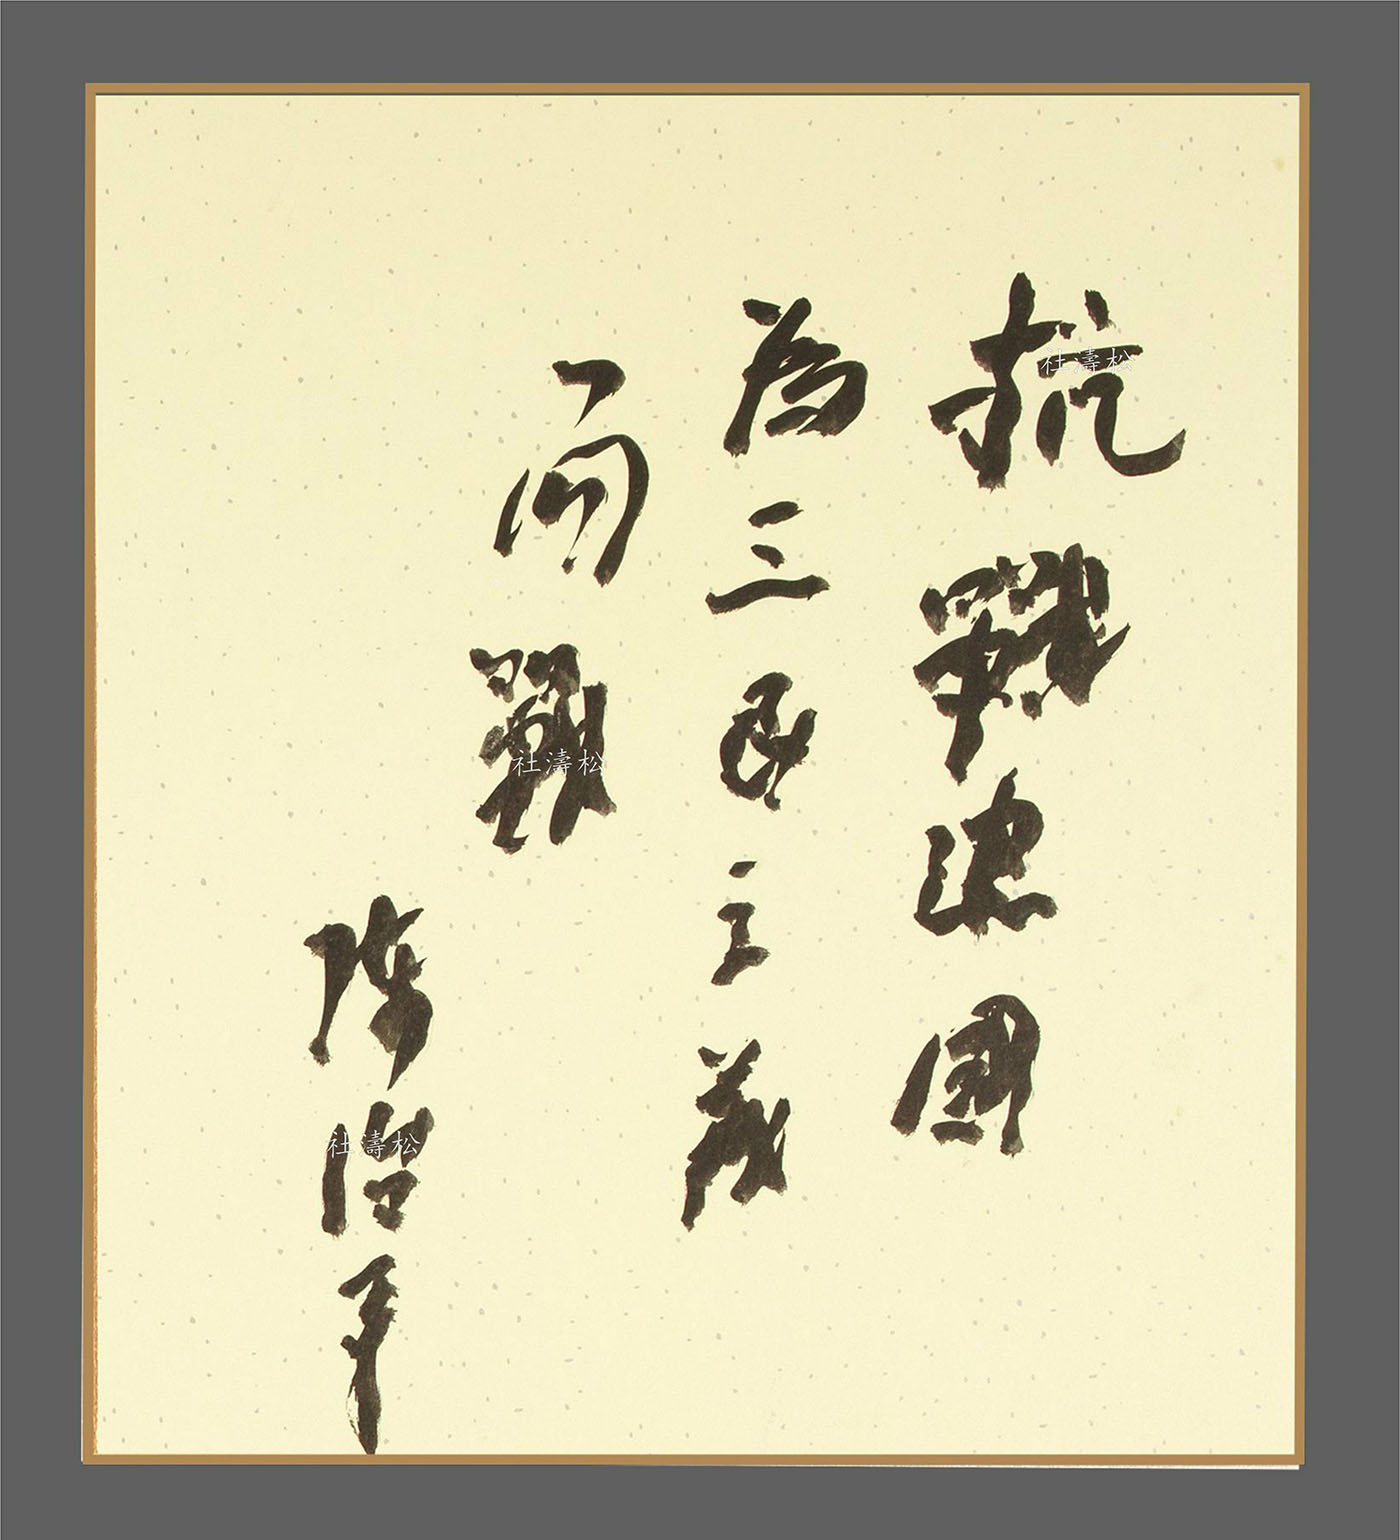 抗戰建國
為三民主義
而戰
陳治平
松濤社
松濤社
松濤社